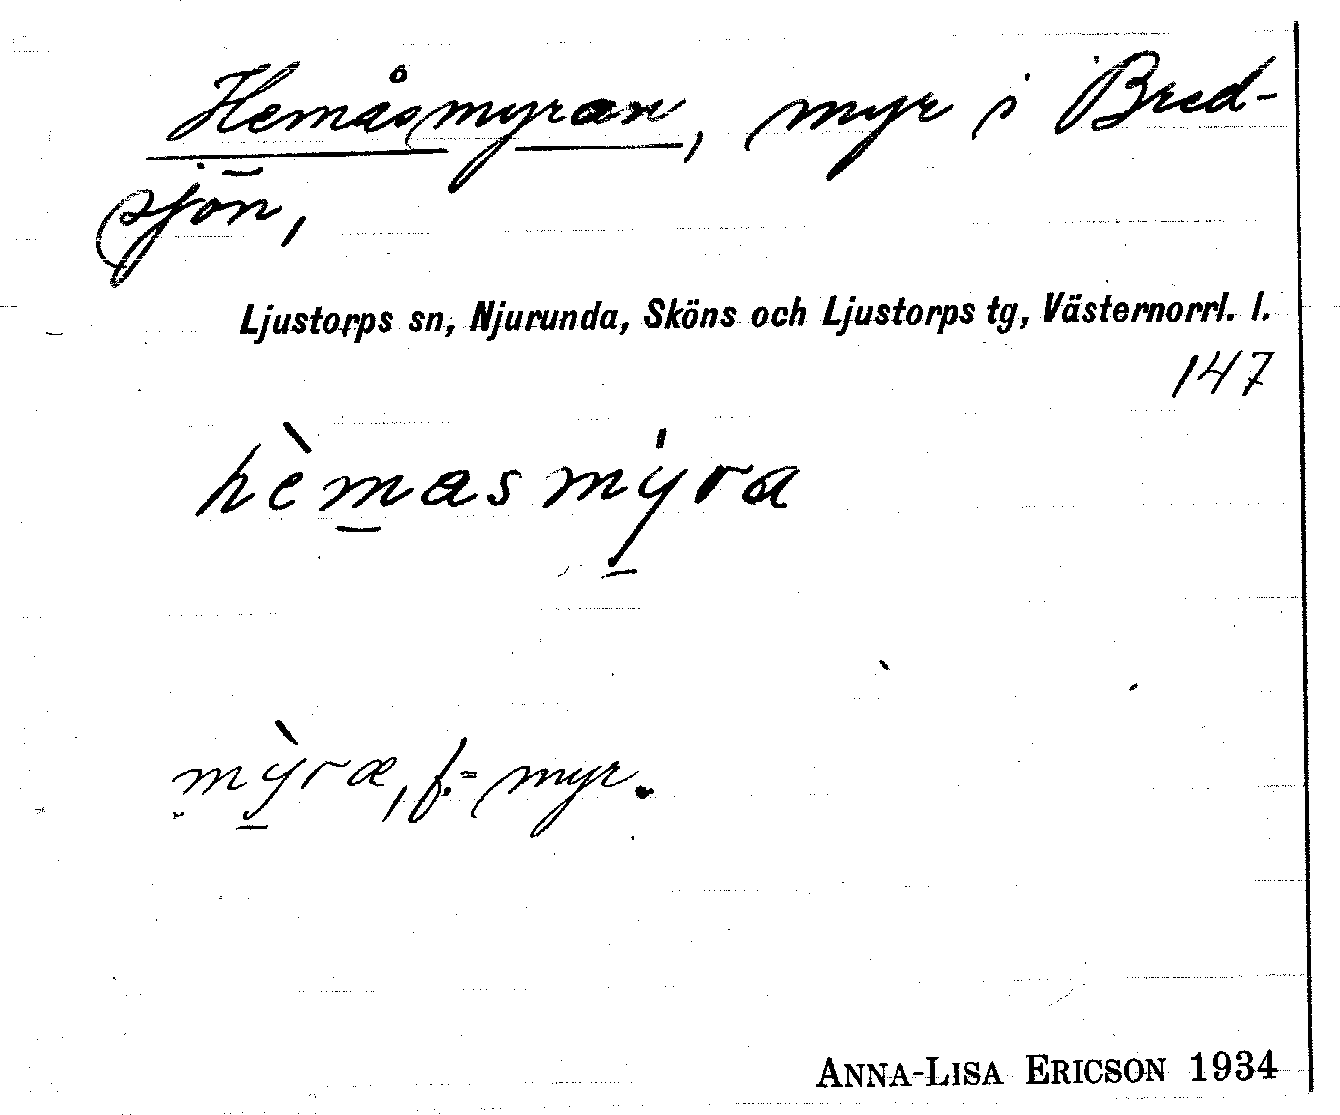 Hemåsmyran, myr i Bred-
sjön,
Ljustorps sn, Njurunda, Sköns och Ljustorps tg, Västernorrl. l.
147
hèmasmýra
mỳræ, f. = myr.
ANNA-LISA ERICSON 1934